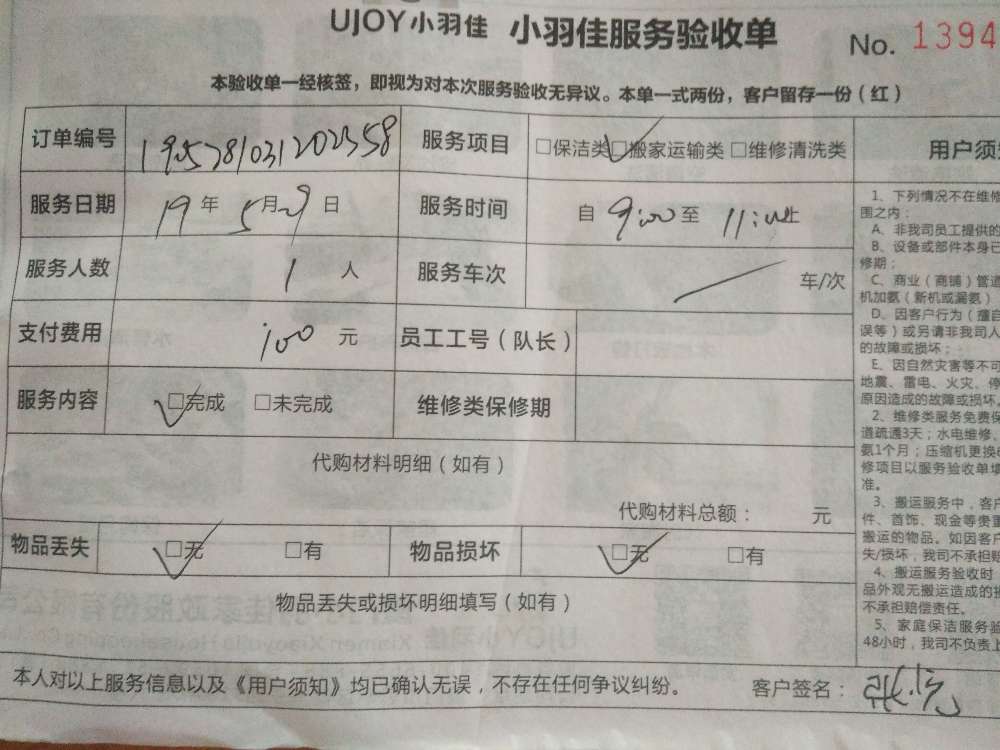 UJOY小羽佳 小羽佳服务验收单 No. 1394
本验收单一经核签，即视为对本次服务验收无异议。本单一式两份，客户留存一份（红）
订单编号 服务项目 □保洁类 □搬家运输类 □维修清洗类
服务日期 19年 5月 日 服务时间 自 9:00 至 11:00 止
服务人数 1 人 服务车次 车/次
支付费用 100 元 员工工号（队长）
服务内容 □完成 □未完成 维修类保修期
代购材料明细（如有）
代购材料总额： 元
物品丢失 □无 □有 物品损坏 □无 □有
物品丢失或损坏明细填写（如有）
本人对以上服务信息以及《用户须知》均已确认无误，不存在任何争议纠纷。 客户签名：
用户须
1、下列情况不在维修
围之内：
A、非我司员工提供的
B、设备或部件本身已
修期；
C、商业（商铺）管道
机加氨（新机或漏氨）
D、因客户行为（擅自
误等）或另请非我司人
的故障或损坏；
E、因自然灾害等不可
地震、雷电、火灾、停
原因造成的故障或损坏
2、维修类服务免费保
道疏通3天；水电维修、
氨1个月；压缩机更换
修项目以服务验收单填
准。
3、搬运服务中，客户
件、首饰、现金等贵重
搬运的物品。如因客户
失/损坏，我司不承担
4、搬运服务验收时
品外观无搬运造成的损
不承担赔偿责任。
5、家庭保洁服务验
48小时，我司不负责上